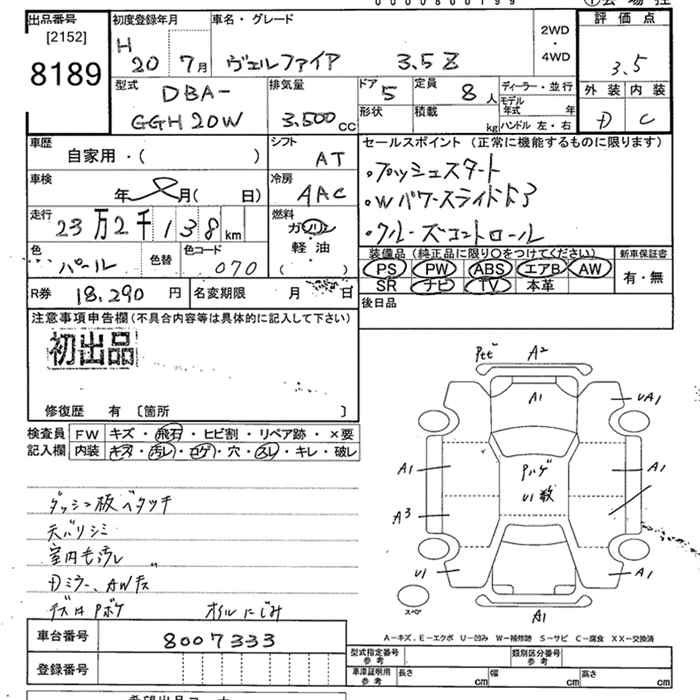 出品番号
[2152]
8189
初度登録年月
H 20 7月
車名・グレード
ヴェルファイア 3.5Z
2WD
・
4WD
評価点
3.5
外装 内装
D C
型式
DBA-
GGH20W
排気量
3.500cc
ドア 5
形状
定員 8人
積載 kg
ディーラー・並行
モデル年式 年
ハンドル 左・右
車歴
自家用・( )
シフト
AT
セールスポイント (正常に機能するものに限ります)
・プッシュスタート
・Wパワースライドドア
・クルーズコントロール
車検
年 月( 日)
冷房
AAC
走行
23万2千138km
燃料
ガソリン
軽・油
( )
色
パール
色替
色コード
070
装備品 (純正品に限り○をつけてください)
PS PW ABS エアB AW
SR ナビ TV 本革
新車保証書
有・無
R券 18,290円
名変期限 月 日
後日品
注意事項申告欄(不具合内容等は具体的に記入して下さい)
初出品
修復歴 有 〔箇所 〕
検査員記入欄
FW キズ・飛石・ヒビ割・リペア跡・×要
内装 キズ・汚レ・コゲ・穴・スレ・キレ・破レ
ダッシュ板ベタッチ
天バリシミ
室内モ汚レ
Dミラー、AWキズ
オイルにじみ
A2
A1
UA1
A1
Pハゲ
U1数
A1
A3
U1
A1
A1
スペア
A-キズ、E-エクボ U-凹み W-補修跡 S-サビ C-腐食 XX-交換済
車台番号 8007333
登録番号
型式指定番号 参考
類別区分番号 参考
車庫証明用 参考
長さ cm
幅 cm
高さ cm